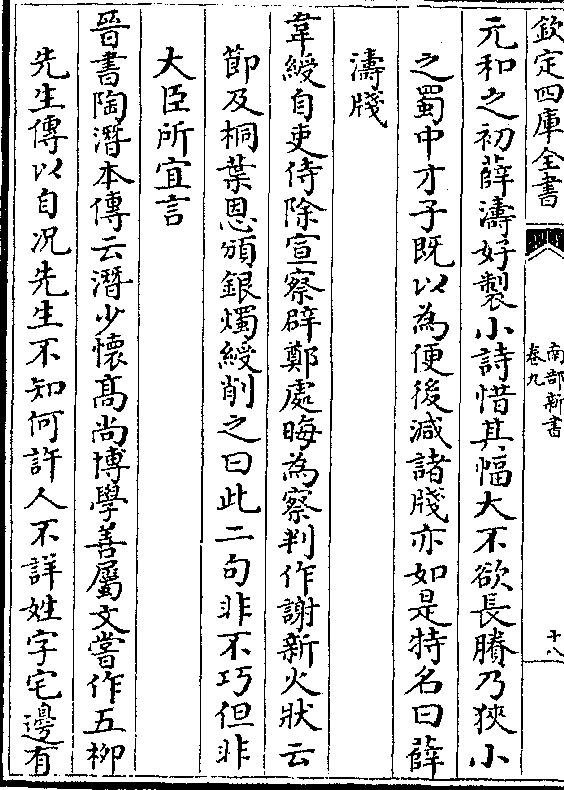 欽定四庫全書
南部新書
卷九
十八
元和之初薛濤好製小詩惜其幅大不欲長賸乃狹小
之蜀中才子既以為便後減諸牋亦如是特名曰薛
濤牋
韋綬自吏侍除宣察辟鄭處晦為察判作謝新火狀云
節及桐葉恩頒銀燭綬削之曰此二句非不巧但非
大臣所宜言
晉書陶潛本傳云潛少懷髙尚博學善屬文嘗作五柳
先生傳以自况先生不知何許人不詳姓字宅邊有